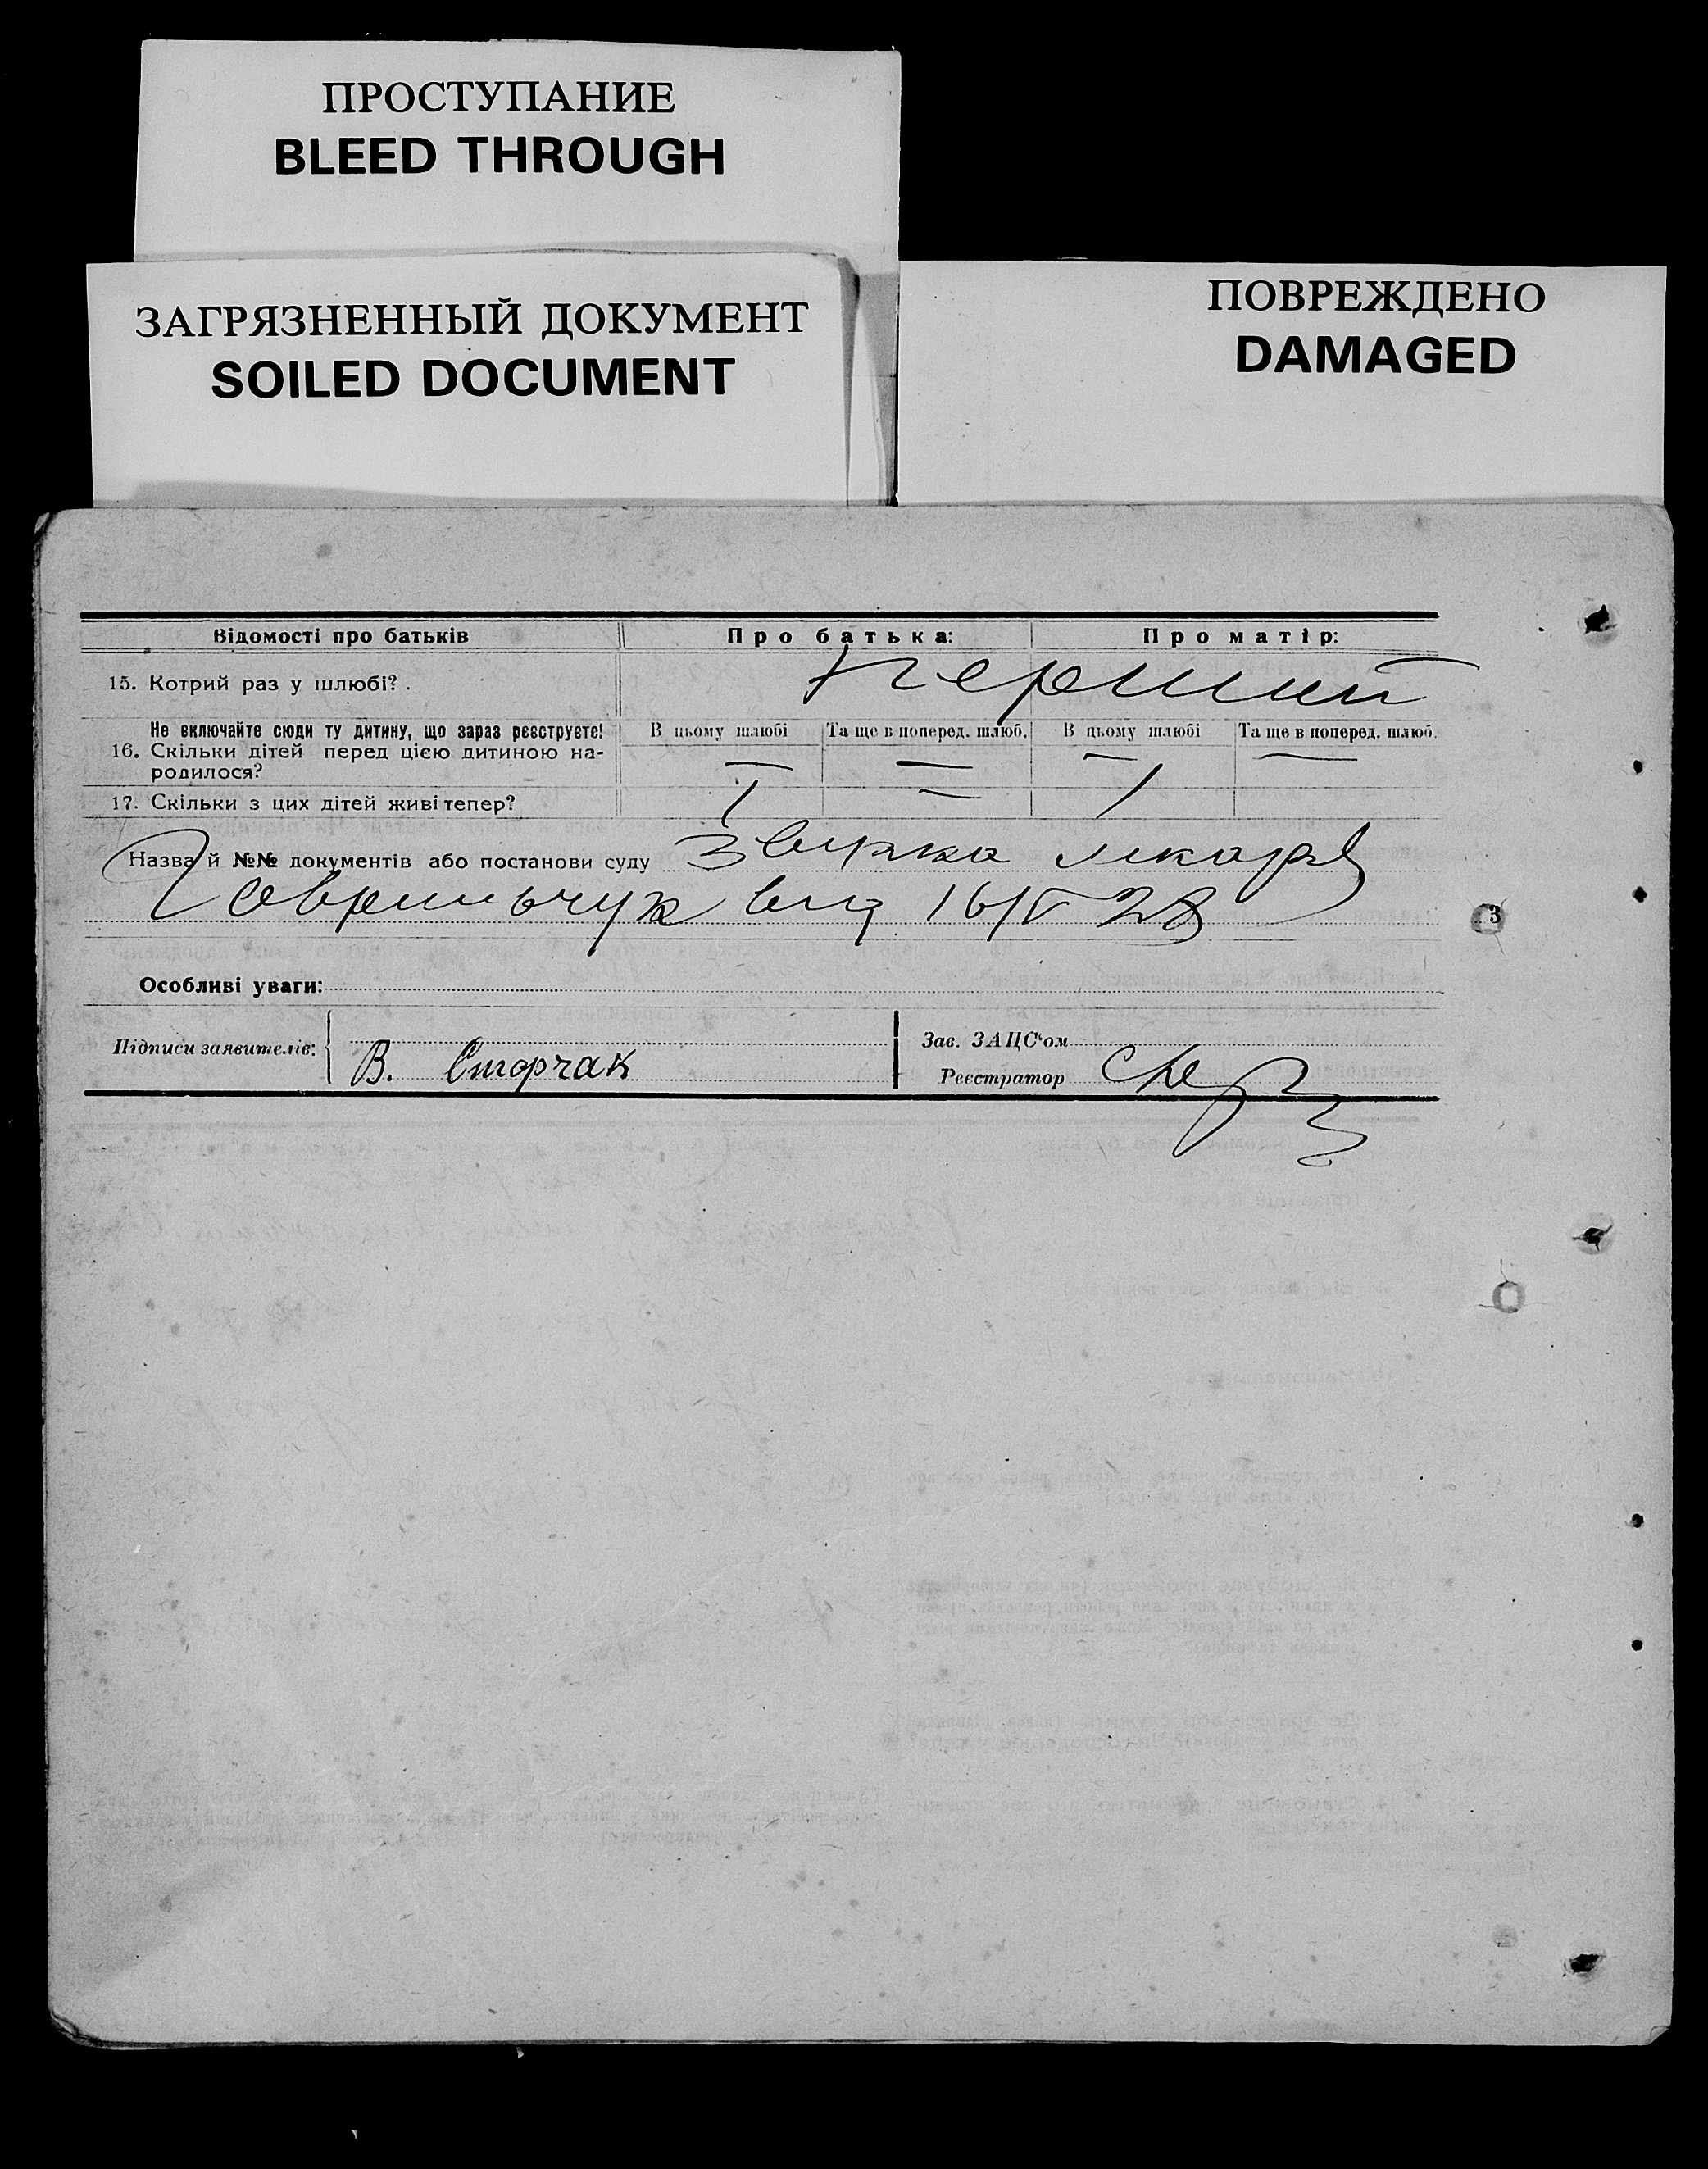 ПРОСТУПАНИЕ
BLEED THROUGH
ЗАГРЯЗНЕННЫЙ ДОКУМЕНТ
SOILED DOCUMENT
ПОВРЕЖДЕНО
DAMAGED
Відомості про батьків Про батька: Про матір:
15. Котрий раз у шлюбі? . перший
Не включайте сюди ту дитину, що зараз реєструєте!
В цьому шлюбі Та ще в поперед. шлюб. В цьому шлюбі Та ще в поперед. шлюб.
16. Скільки дітей перед цією дитиною на-
родилося? — — — —
17. Скільки з цих дітей живі тепер?
Назва й №№ документів або постанови суду лікаря
Гаврильчук від 16/V 28
3
Особливі уваги:
Підписи заявителів: В. Сторчак
Зав. ЗАЦС‘ом
Реєстратор